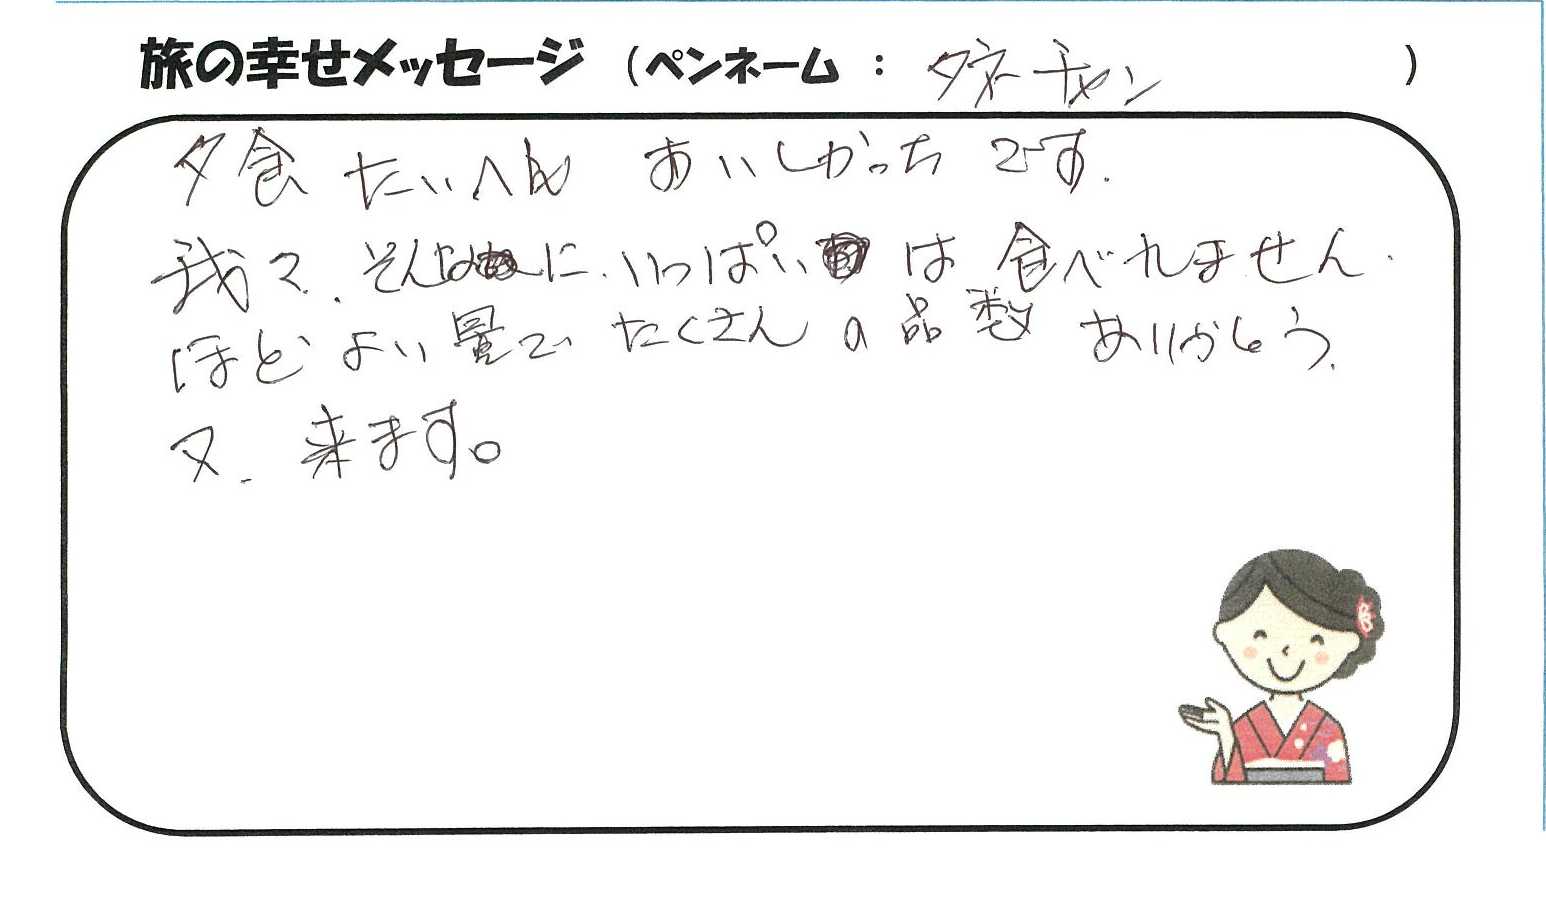 旅の幸せメッセージ (ペンネーム : タネーチャン )
夕食 たいへん おいしかっち です.
我々. そんなに. いっぱい は 食べれません.
ほどよい量で たくさんの品数 ありがとう.
又. 来ます。